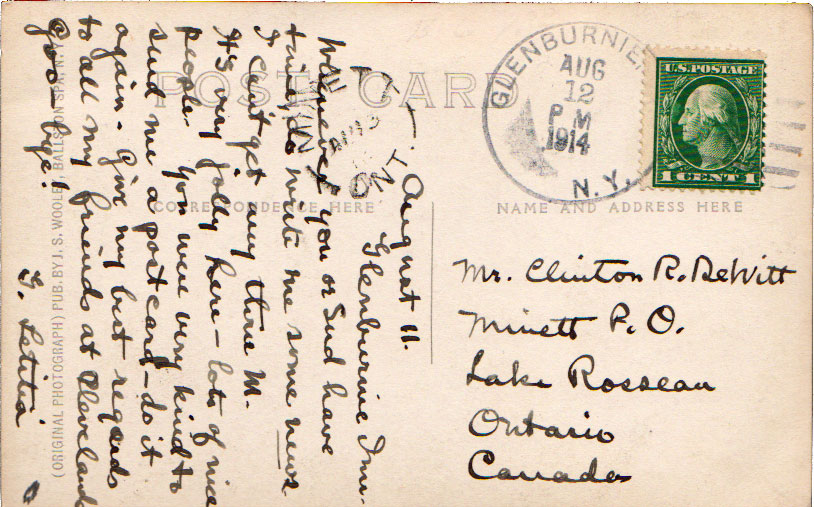 POST CARD
GLENBURNIE
AUG
12
P M
1914
N.Y.
U.S. POSTAGE
1 CENT 1
MINETT
ONT
CORRESPONDENCE HERE
NAME AND ADDRESS HERE
August 11.
Glenburnie Inn.
Whenever you or Sud have
time, do write me some news
I can't get any M.
It's very jolly here - lots of nice
people. You were very kind to
send me a postcard - do it
again. Give my best regards
to all my friends at Clevelands
Good-bye!
G. Letitia
Mr. Clinton R. DeWitt
Minett P.O.
Lake Rosseau
Ontario
Canada
(ORIGINAL PHOTOGRAPH) PUB. BY J. S. WOOLEY, BALLSTON SPA, N.Y.